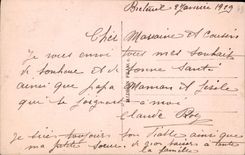 Breteuil 2 Janvier 1929
Chès Maraine et Cousins
Je vous envoi tous mes souhaits
de bonheur et de bonne Santé
ainsi que papa Maman et Gisèle
que se joignent a moi
Claude
Je suis toujours bon Diable ainsi que
ma petite Soeur. de gros baiser à toute
la famille